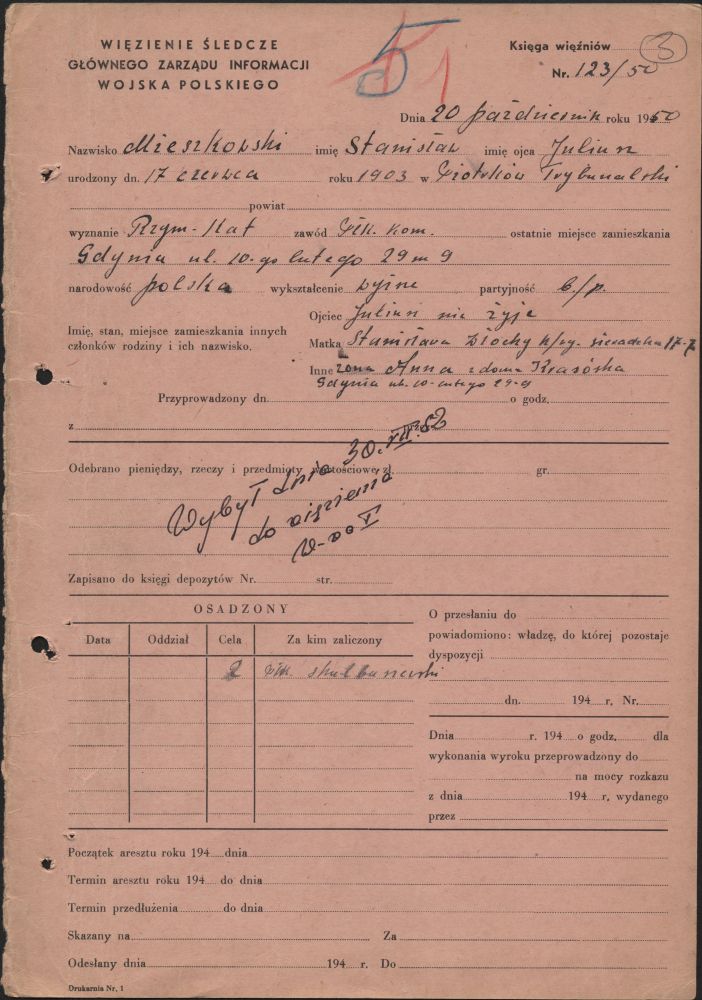 WIĘZIENIE ŚLEDCZE
GŁÓWNEGO ZARZĄDU INFORMACJI
WOJSKA POLSKIEGO
5
1
Księga więźniów 3
Nr. 123/50
Dnia 20 październik roku 1950
Nazwisko Mieszkowski imię Stanisław imię ojca Juliusz
urodzony dn. 17 czerwca roku 1903 w Piotrków Trybunalski
powiat
wyznanie Rzym-Kat zawód kom. ostatnie miejsce zamieszkania
Gdynia ul. 10-go lutego 29 m 9
narodowość polska wykształcenie wyższe partyjność b/p.
Ojciec Juliusz nie żyje
Imię, stan, miejsce zamieszkania innych
członków rodziny i ich nazwisko.
Matka Stanisława Włochy sieradzka 17-7
Inne żona Anna z domu
Gdynia ul. 10-lutego 29-9
Przyprowadzony dn. o godz.
z
Odebrano pieniędzy, rzeczy i przedmioty wartościowe zł. gr.
Wybył dnia 30.VII.52
do więzienia
N-ro V
Zapisano do księgi depozytów Nr. str.
OSADZONY
Data Oddział Cela Za kim zaliczony
2
O przesłaniu do
powiadomiono: władzę, do której pozostaje
dyspozycji
dn. 194 r. Nr.
Dnia r. 194 o godz. dla
wykonania wyroku przeprowadzony do
na mocy rozkazu
z dnia 194 r. wydanego
przez
Początek aresztu roku 194 dnia
Termin aresztu roku 194 do dnia
Termin przedłużenia do dnia
Skazany na Za
Odesłany dnia 194 r. Do
Drukarnia Nr. 1